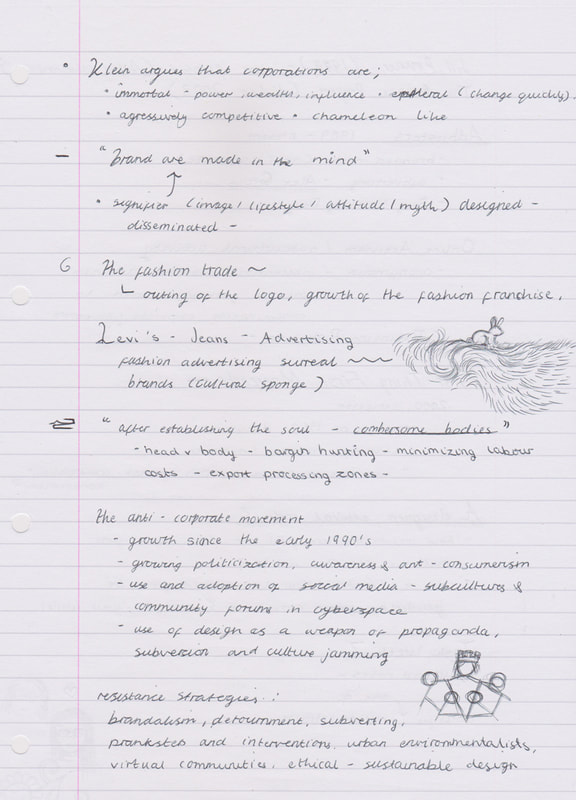 • Klein argues that corporations are;
• immortal - power, wealth, influence • epheral (change quickly).
• agressively competitive • chameleon like
- "brand are made in the mind"
• signifier (image / lifestyle / attitude / myth) designed -
disseminated -
G The fashion trade ~
outing of the logo, growth of the fashion franchise.
Levi's - Jeans - Advertising
fashion advertising surreal
brands (cultural sponge)
"after establishing the soul - combersome bodies"
- head v body - bargin hunting - minimizing labour
costs - export processing zones -
the anti - corporate movement
- growth since the early 1990's
- growing politicization, awareness & ant - consumerism
- use and adoption of social media - subcultures &
community forums in cyberspace
- use of design as a weapon of propaganda,
subversion and culture jamming
resistance strategies:
brandalism, detournment, subverting,
pranksters and interventions, urban environmentalists,
virtual communities, ethical - sustainable design